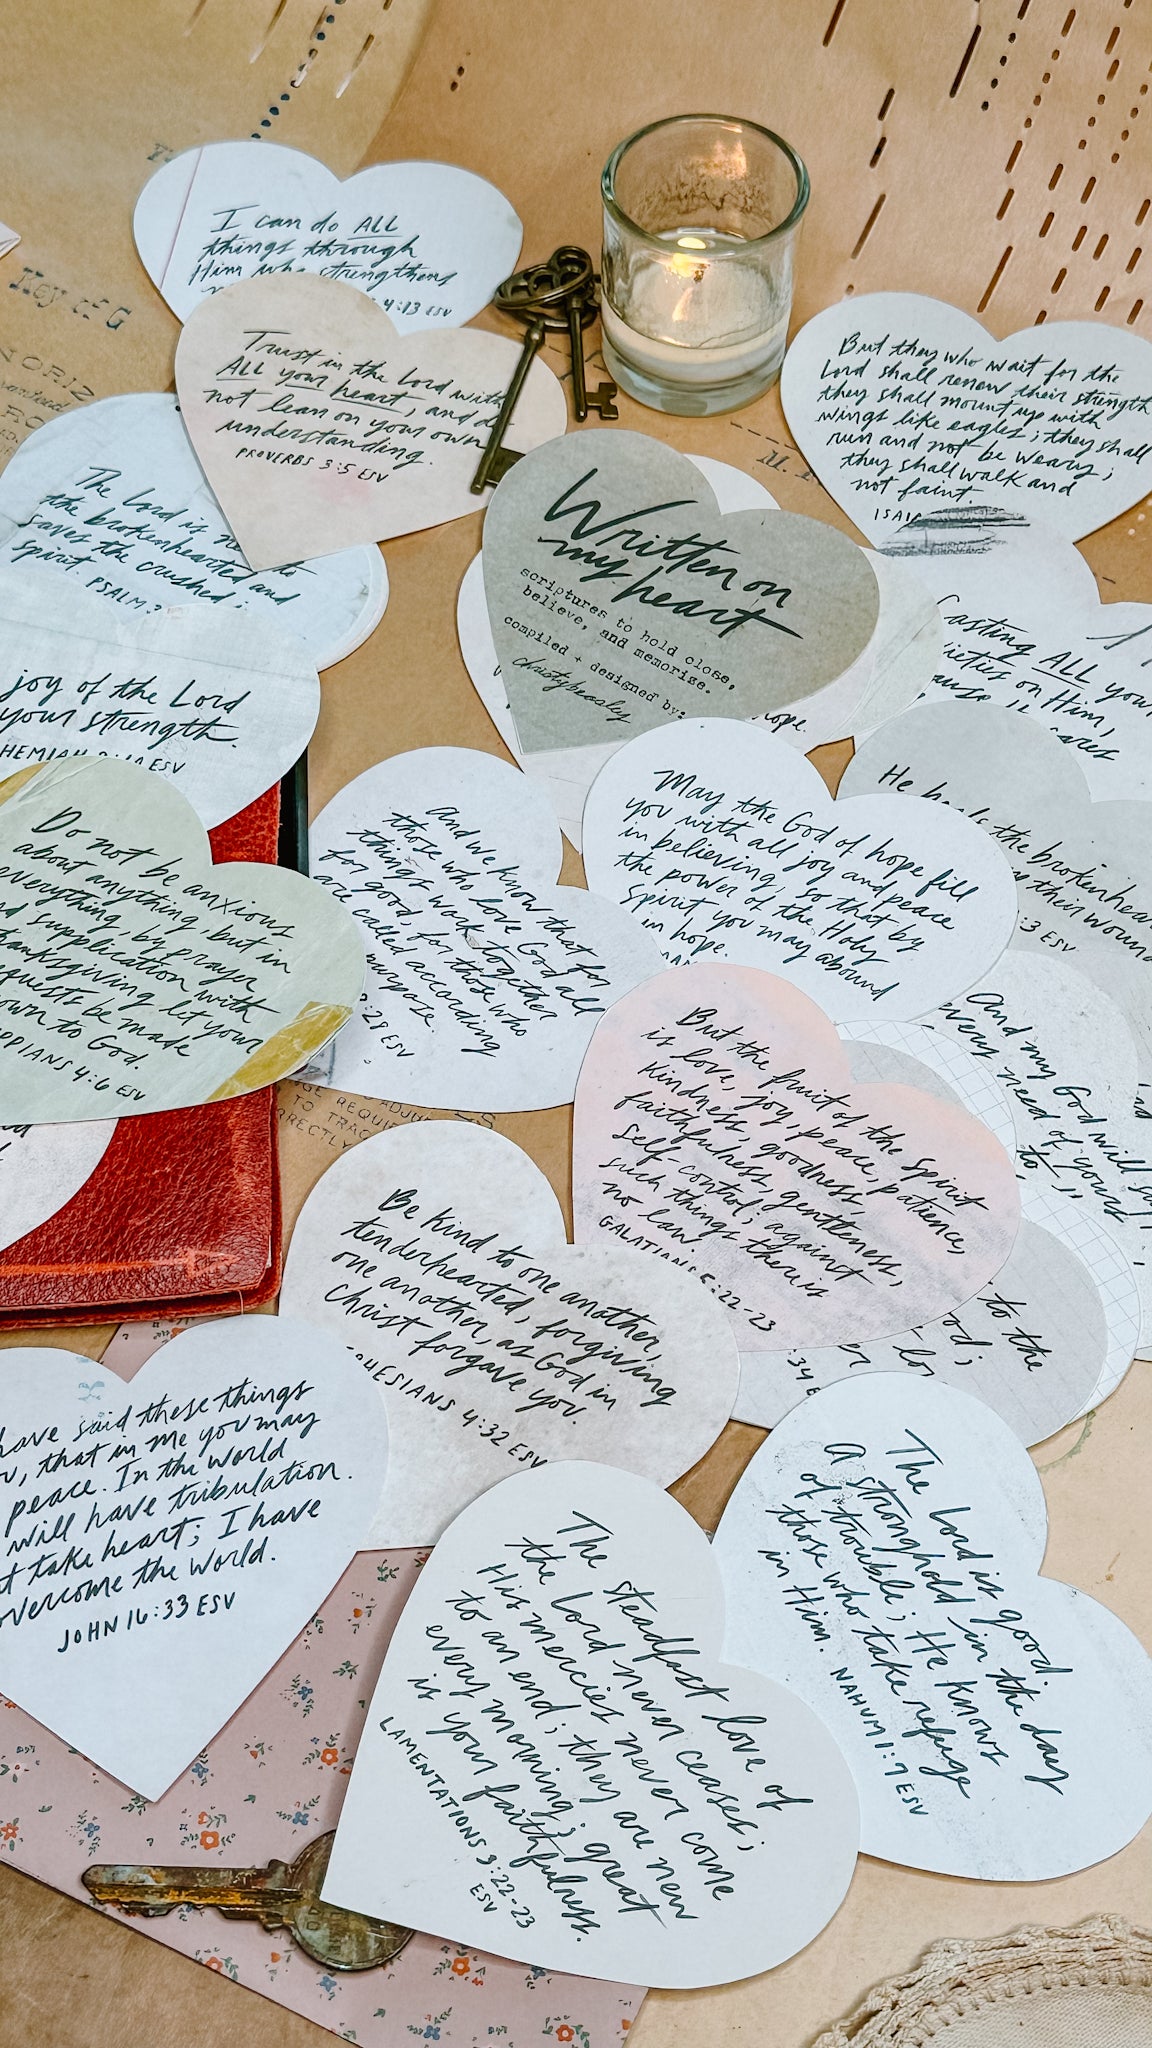 I can do ALL
things through
Him who strengthens
4:13 ESV
Key of G
Trust in the Lord with
ALL your heart, and do
not lean on your own
understanding.
PROVERBS 3:5 ESV
But they who wait for the
Lord shall renew their strength
they shall mount up with
wings like eagles; they shall
run and not be weary;
they shall walk and
not faint.
ISAI
The Lord is near to
the brokenhearted and
saves the crushed in
spirit. PSALM 3
Written on
my heart
scriptures to hold close,
believe, and memorize.
compiled + designed by:
christybeasley
hope.
Casting ALL your
ieties on Him,
cause cares
joy of the Lord
your strength.
HEMIAH 8:10 ESV
He heals the brokenhear
their wound
:3 ESV
Do not be anxious
about anything, but in
everything, by prayer
nd supplication with
hanksgiving let your
equests be made
own to God.
PPIANS 4:6 ESV
And we know that for
those who love God all
things work together
for good, for those who
are called according
purpose.
:28 ESV
May the God of hope fill
you with all joy and peace
in believing, so that by
the power of the Holy
Spirit you may abound
in hope.
And my God will
every need of yours
to
But the fruit of the Spirit
is love, joy, peace, patience,
kindness, goodness,
faithfulness, gentleness,
self-control; against
such things there is
no law.
GALATIANS 5:22-23
ADJU
REQUIR
TO TRAC
RRECTLY
Be kind to one another,
tenderhearted, forgiving
one another, as God in
Christ forgave you.
PHESIANS 4:32 ESV
to the
od;
:34 E
have said these things
u, that in me you may
peace. In the world
will have tribulation.
t take heart; I have
overcome the world.
JOHN 16:33 ESV
The Lord is good
A stronghold in the day
of trouble; He knows
those who take refuge
in Him. NAHUM 1:7 ESV
The steadfast love of
the Lord never ceases;
His mercies never come
to an end; they are new
every morning; great
is your faithfulness.
LAMENTATIONS 3:22-23
ESV